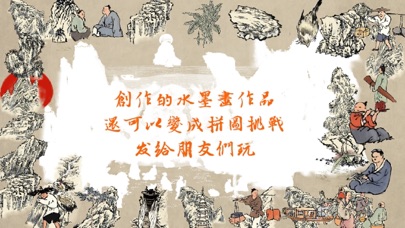 創作的水墨畫作品
還可以變成拼圖挑戰
发給朋友們玩